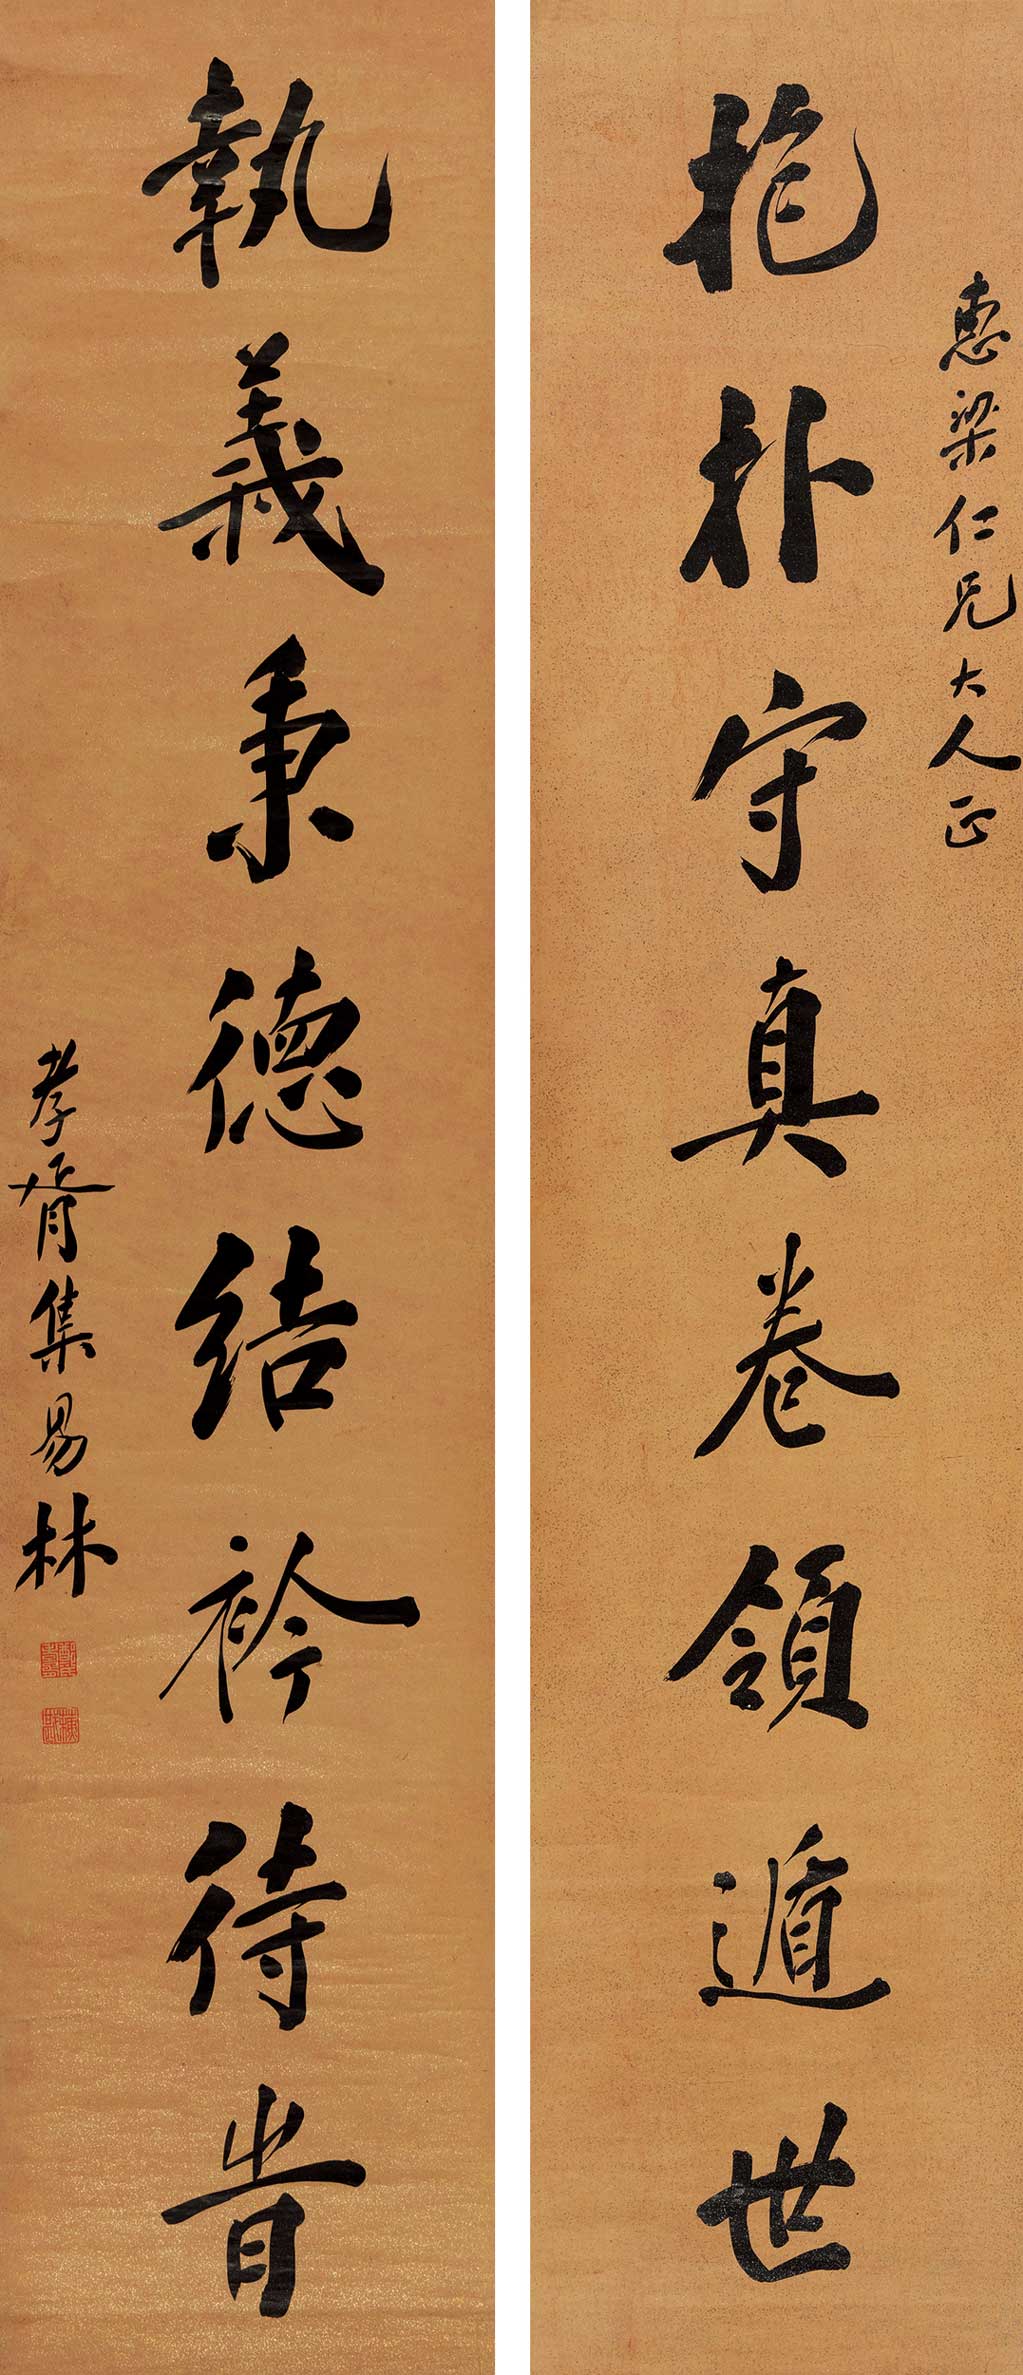 惠梁仁兄大人正
抱朴守真卷領遁世
執義秉德結衿待時
孝胥集易林